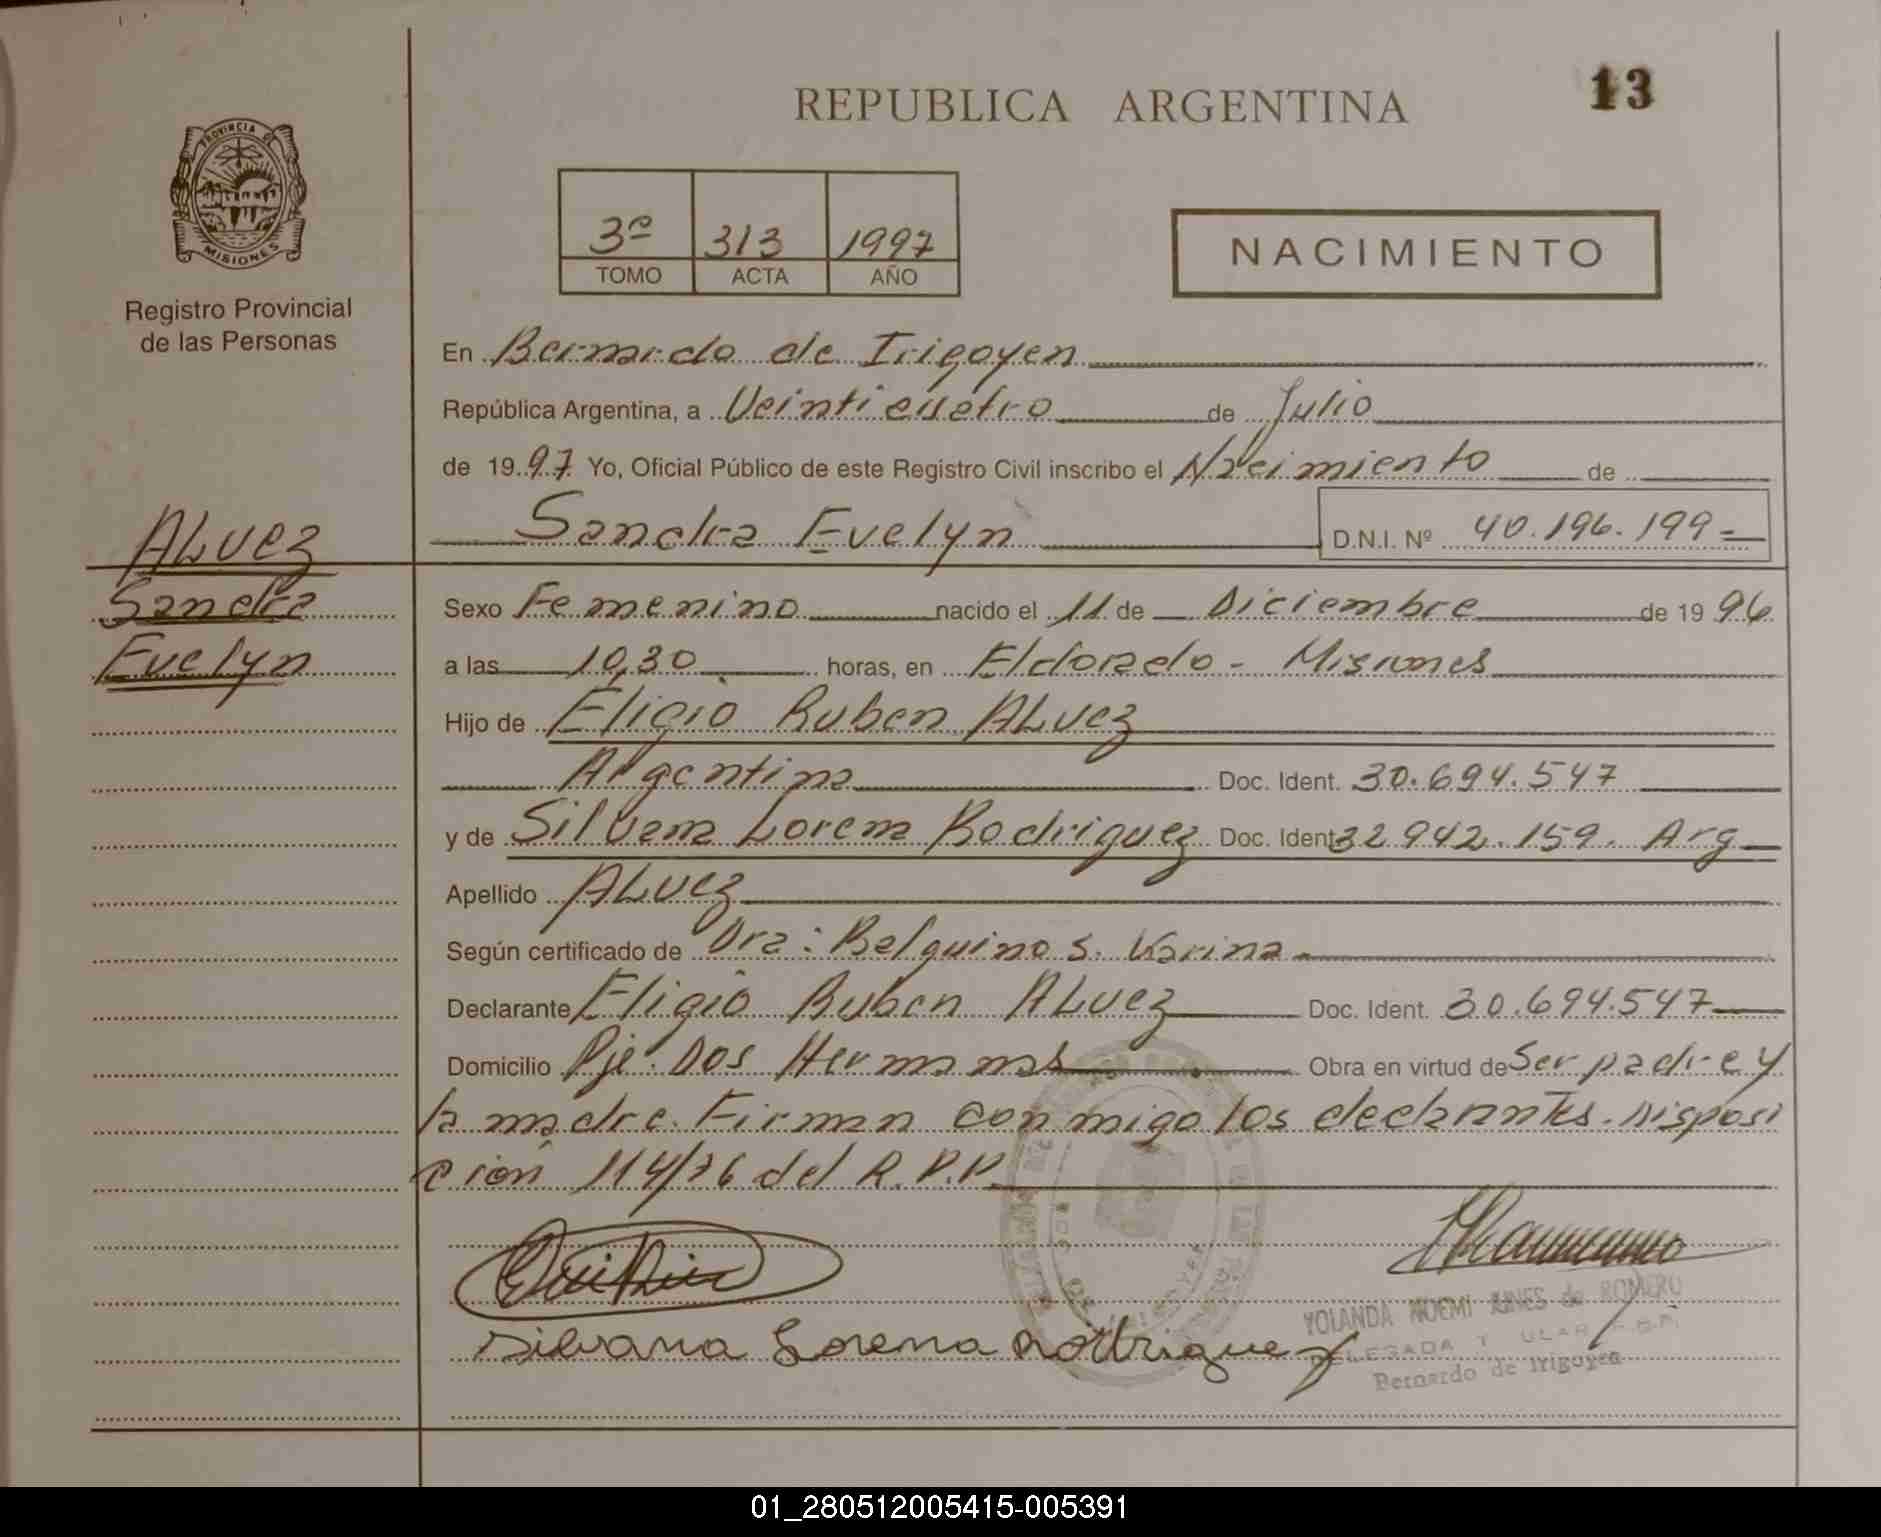 REPUBLICA ARGENTINA
13
PROVINCIA D
MISIONES
Registro Provincial
de las Personas
3º 313 1997
TOMO ACTA AÑO
NACIMIENTO
En Bernardo de Irigoyen
República Argentina, a Veinticuatro de Julio
de 1997 Yo, Oficial Público de este Registro Civil inscribo el Nacimiento de
Sandra Evelyn D.N.I. Nº 40.196.199=
ALvez
Sandra
Evelyn
Sexo Femenino nacido el 11 de Diciembre de 1996
a las 10,30 horas, en Eldorado - Misiones
Hijo de Eligio Ruben ALvez
Argentina Doc. Ident. 30.694.547
y de Silvana Lorena Rodriguez Doc. Ident 32942.159. Arg
Apellido ALvez
Según certificado de Dra: Balquino S. Karina
Declarante Eligio Ruben ALvez Doc. Ident. 30.694.547
Domicilio Pje. Dos Hermanas Obra en virtud de Ser padre y
la madre. Firman conmigo los declarantes. Disposi
cion 114/76 del R.P.P.
Silvana Lorena Rodriguez
YOLANDA NOEMI de ROMERO
Bernardo de Irigoyen
01_280512005415-005391